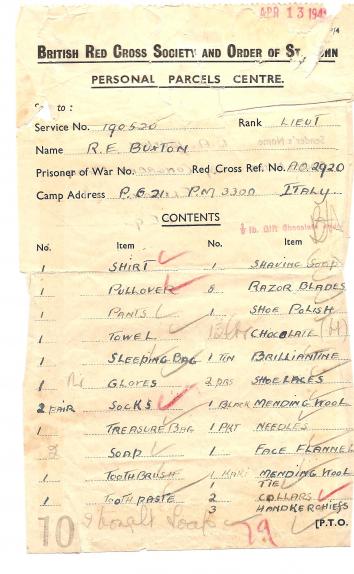 APR 13 194
BRITISH RED CROSS SOCIETY AND ORDER OF ST. JOHN
PERSONAL PARCELS CENTRE.
to :
Service No. 190520 Rank LIEUT
Name R.E. BUXTON
Prisoner of War No. Red Cross Ref. No. AO2920
Camp Address P.G 21 P.M 3300 ITALY
CONTENTS
No. Item No. Item
1 SHIRT 1 SHAVING SOAP
1 PULLOVER 5 RAZOR BLADES
1 PANTS 1 SHOE POLISH
1 TOWEL CHOCOLATE (H)
1 SLEEPING BAG 1 TIN BRILLIANTINE
1 GLOVES 2 PRS SHOE LACES
2 PAIR SOCKS 1 BLACK MENDING WOOL
1 TREASURE BAG 1 PKT NEEDLES
SOAP 1 FACE FLANNEL
1 TOOTHBRUSH 1 KAKI MENDING WOOL
1 TIE
1 TOOTH PASTE 2 COLLARS
3 HANDKERCHIEFS
10 Soap 79 [P.T.O.